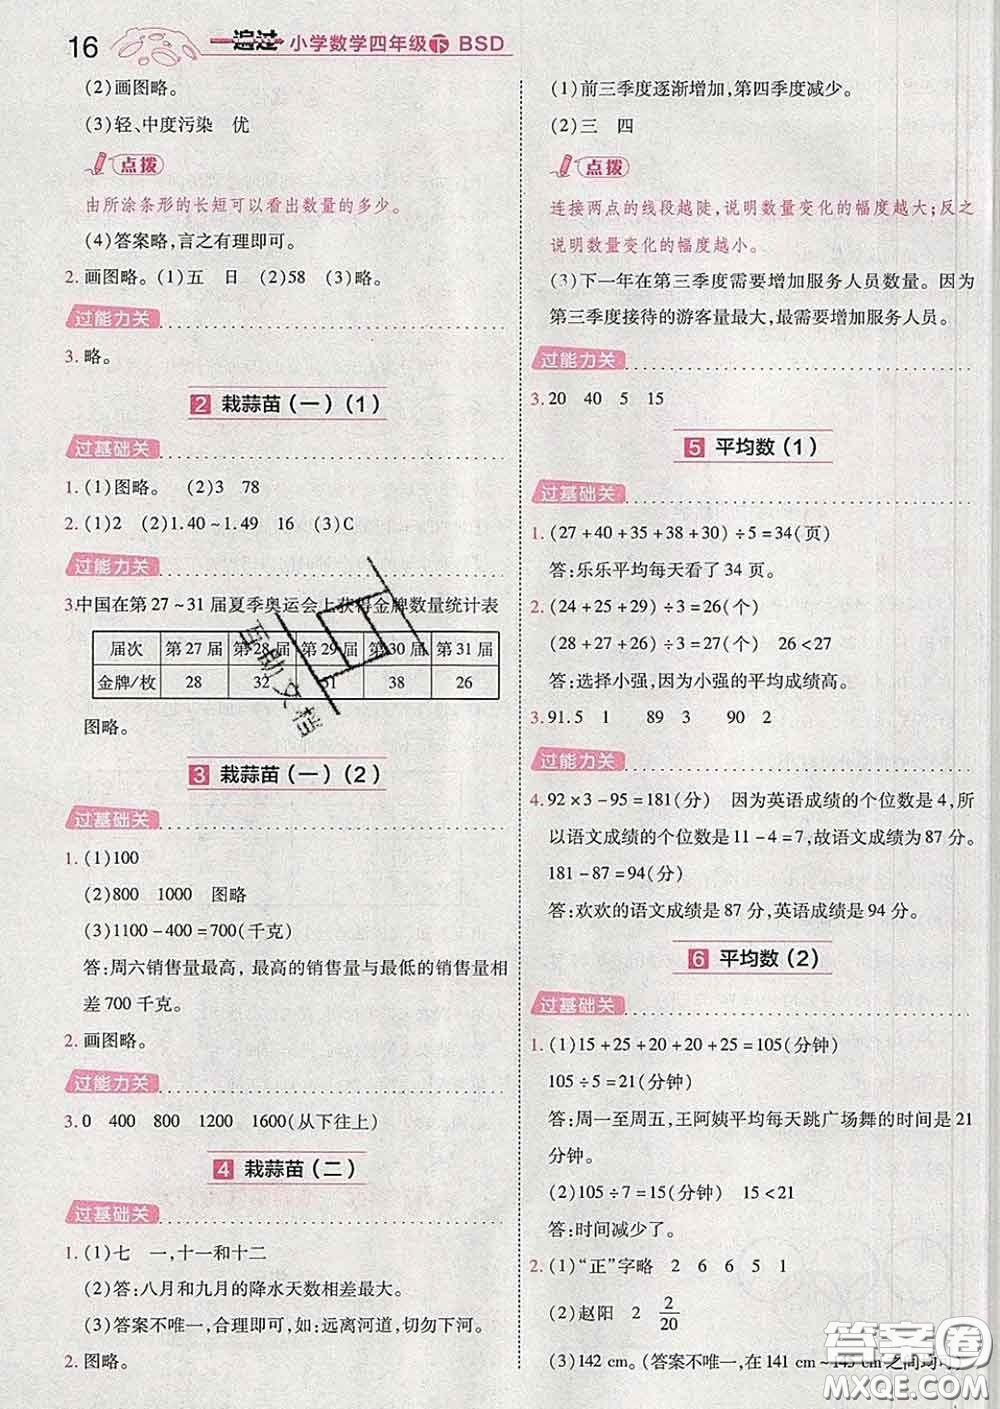 16 一遍过 小学数学四年级下 BSD
(2)画图略。
(3)轻、中度污染 优
点拨
由所涂条形的长短可以看出数量的多少。
(4)答案略,言之有理即可。
2. 画图略。(1)五 日 (2)58 (3)略。
过能力关
3. 略。
2 栽蒜苗(一)(1)
过基础关
1. (1)图略。 (2)3 78
2. (1)2 (2)1.40~1.49 16 (3)C
过能力关
3.中国在第27~31届夏季奥运会上获得金牌数量统计表
届次 第27届 第28届 第29届 第30届 第31届
金牌/枚 28 32 51 38 26
图略。
3 栽蒜苗(一)(2)
过基础关
1. (1)100
(2)800 1000 图略
(3)1100-400=700(千克)
答:周六销售量最高,最高的销售量与最低的销售量相
差700千克。
2. 画图略。
过能力关
3.0 400 800 1200 1600(从下往上)
4 栽蒜苗(二)
过基础关
1. (1)七 一,十一和十二
(2)答:八月和九月的降水天数相差最大。
(3)答案不唯一,合理即可,如:远离河道,切勿下河。
2. 图略。
(1)前三季度逐渐增加,第四季度减少。
(2)三 四
点拨
连接两点的线段越陡,说明数量变化的幅度越大;反之
说明数量变化的幅度越小。
(3)下一年在第三季度需要增加服务人员数量。因为
第三季度接待的游客量最大,最需要增加服务人员。
过能力关
3.20 40 5 15
5 平均数(1)
过基础关
1. (27+40+35+38+30)÷5=34(页)
答:乐乐平均每天看了34页。
2. (24+25+29)÷3=26(个)
(28+27+26)÷3=27(个) 26<27
答:选择小强,因为小强的平均成绩高。
3.91.5 1 89 3 90 2
过能力关
4.92×3-95=181(分) 因为英语成绩的个位数是4,所
以语文成绩的个位数是11-4=7,故语文成绩为87分。
181-87=94(分)
答:欢欢的语文成绩是87分,英语成绩是94分。
6 平均数(2)
过基础关
1. (1)15+25+20+20+25=105(分钟)
105÷5=21(分钟)
答:周一至周五,王阿姨平均每天跳广场舞的时间是21
分钟。
(2)105÷7=15(分钟) 15<21
答:时间减少了。
2. (1)“正”字略 2 6 6 5 1
(2)赵阳 2 2/20
(3)142 cm。(答案不唯一,在141 cm~143 cm之间均可)
互助文档
答案圈
MXQE.COM